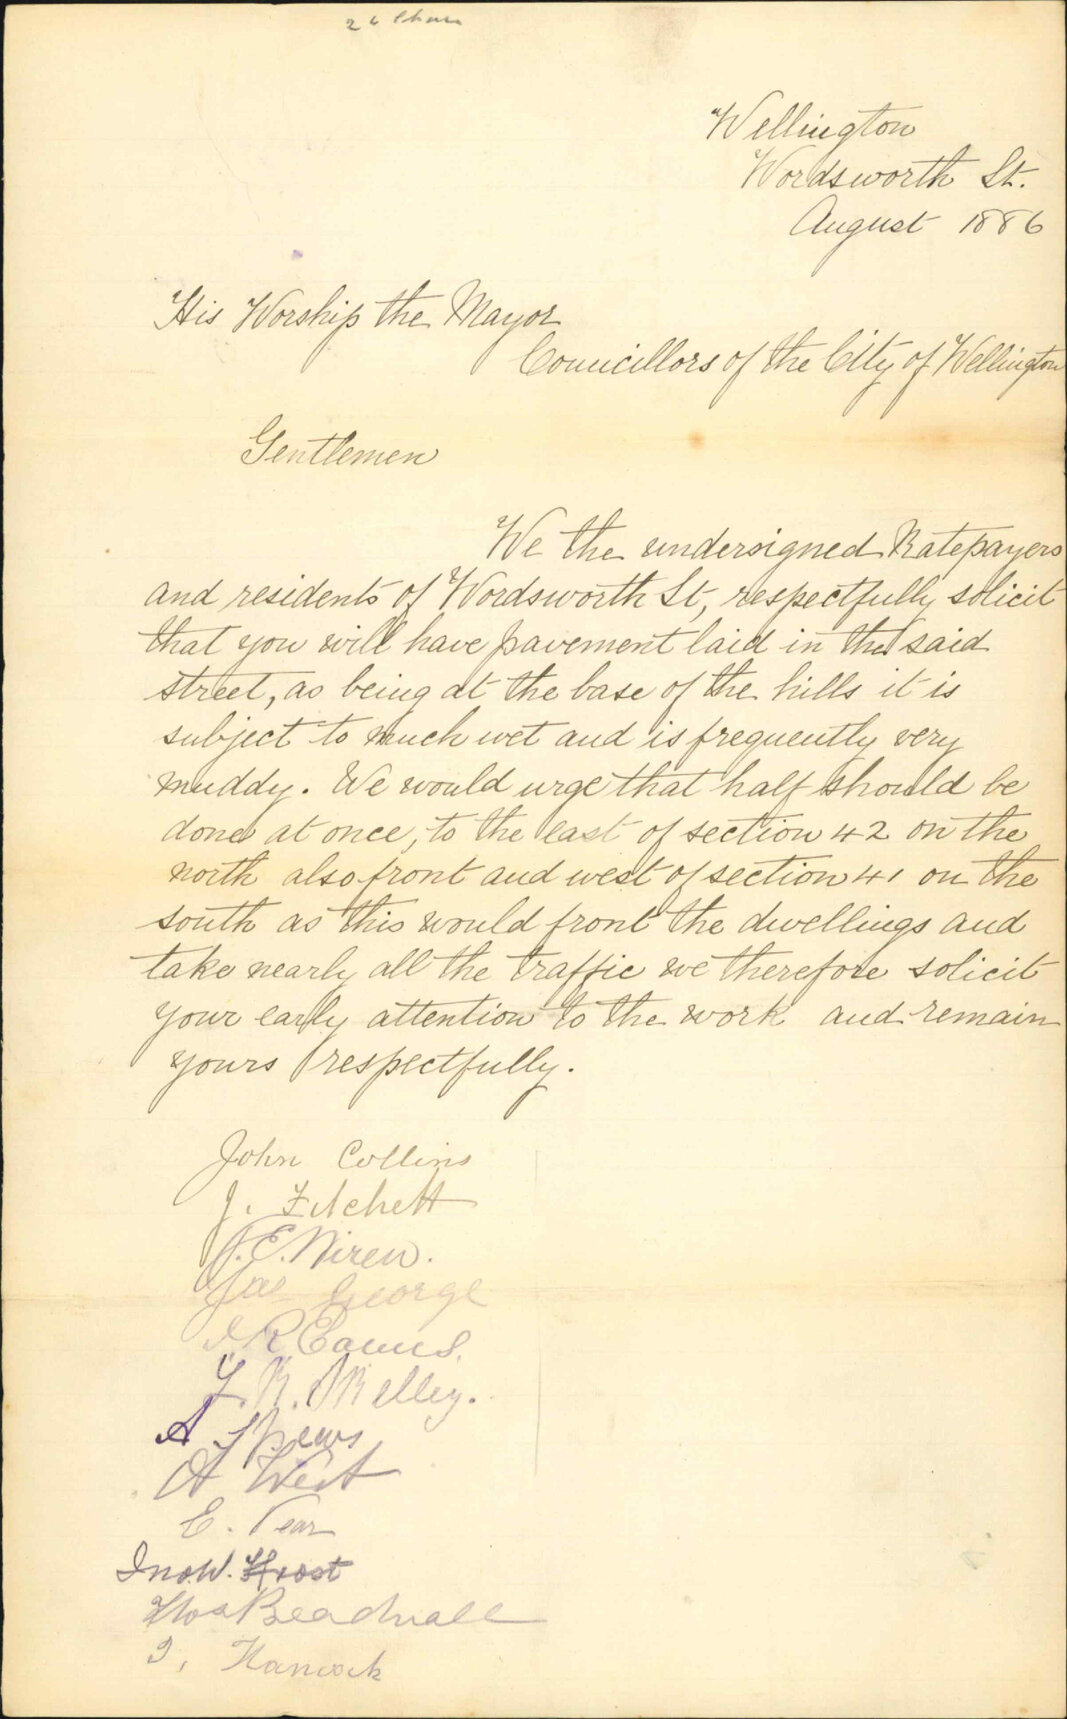 26 Chain
Wellington
Wordsworth St.
August 1886
His Worship the Mayor
Councillors of the City of Wellington
Gentlemen
We the undersigned Ratepayers
and residents of Wordsworth St, respectfully solicit
that you will have pavement laid in the said
street, as being at the base of the hills it is
subject to much wet and is frequently very
muddy. We would urge that half should be
done at once, to the east of section 42 on the
north also front and west of section 41 on the
south as this would front the dwellings and
take nearly all the traffic we therefore solicit
your early attention to the work and remain
yours respectfully.
John Collins
J. Fitchett
E. Niren.
Jas George
R Eames.
Kelley.
A Spews
A West
E. Vear
Jno. W. Frost
Thos Beadnall
Hancock